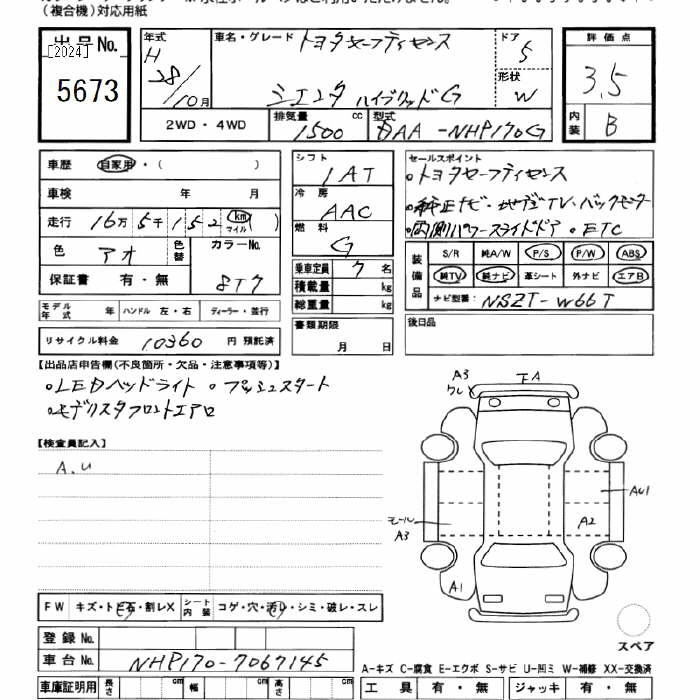 (複合機)対応用紙
出品No. [2024] 5673
年式 H 28/10月
車名・グレード トヨタセーフティセンス
シエンタ ハイブリッドG
ドア 5
形状 W
評価点 3.5
内装 B
2WD・4WD
排気量 1500 cc
型式 DAA-NHP170G
車歴 自家用・( )
車検 年 月
走行 16万 5千 152 km マイル ( )
色 アオ 色替
カラーNo. 8T7
保証書 有・無
シフト IAT
冷房 AAC
燃料 G
乗車定員 7 名
積載量 kg
総重量 kg
セールスポイント
・トヨタセーフティセンス
・純正ナビ・地デジTV・バックモニター
・両側パワースライドドア ・ETC
装備品 S/R 純A/W P/S P/W ABS
純TV 純ナビ 革シート 外ナビ エアB
ナビ型番: NSZT-W66T
モデル年式 年 ハンドル 左・右 ディーラー・並行
リサイクル料金 10360 円 預託済
書類期限 月 日
後日品
【出品店申告欄(不良箇所・欠品・注意事項等)】
・LEDヘッドライト ・プッシュスタート
・モデリスタフロントエアロ
【検査員記入】
A.U
A3
FA
AU1
A2
モール
A3
A1
FW キズ・トビ石・割レX
シート内装 コゲ・穴・汚レ・シミ・破レ・スレ
スペア
登録No.
車台No. NHP170-7067145
A-キズ C-腐食 E-エクボ S-サビ U-凹ミ W-補修 XX-交換済
車庫証明用 長さ cm 幅 cm 高さ cm
工具 有・無 ジャッキ 有・無